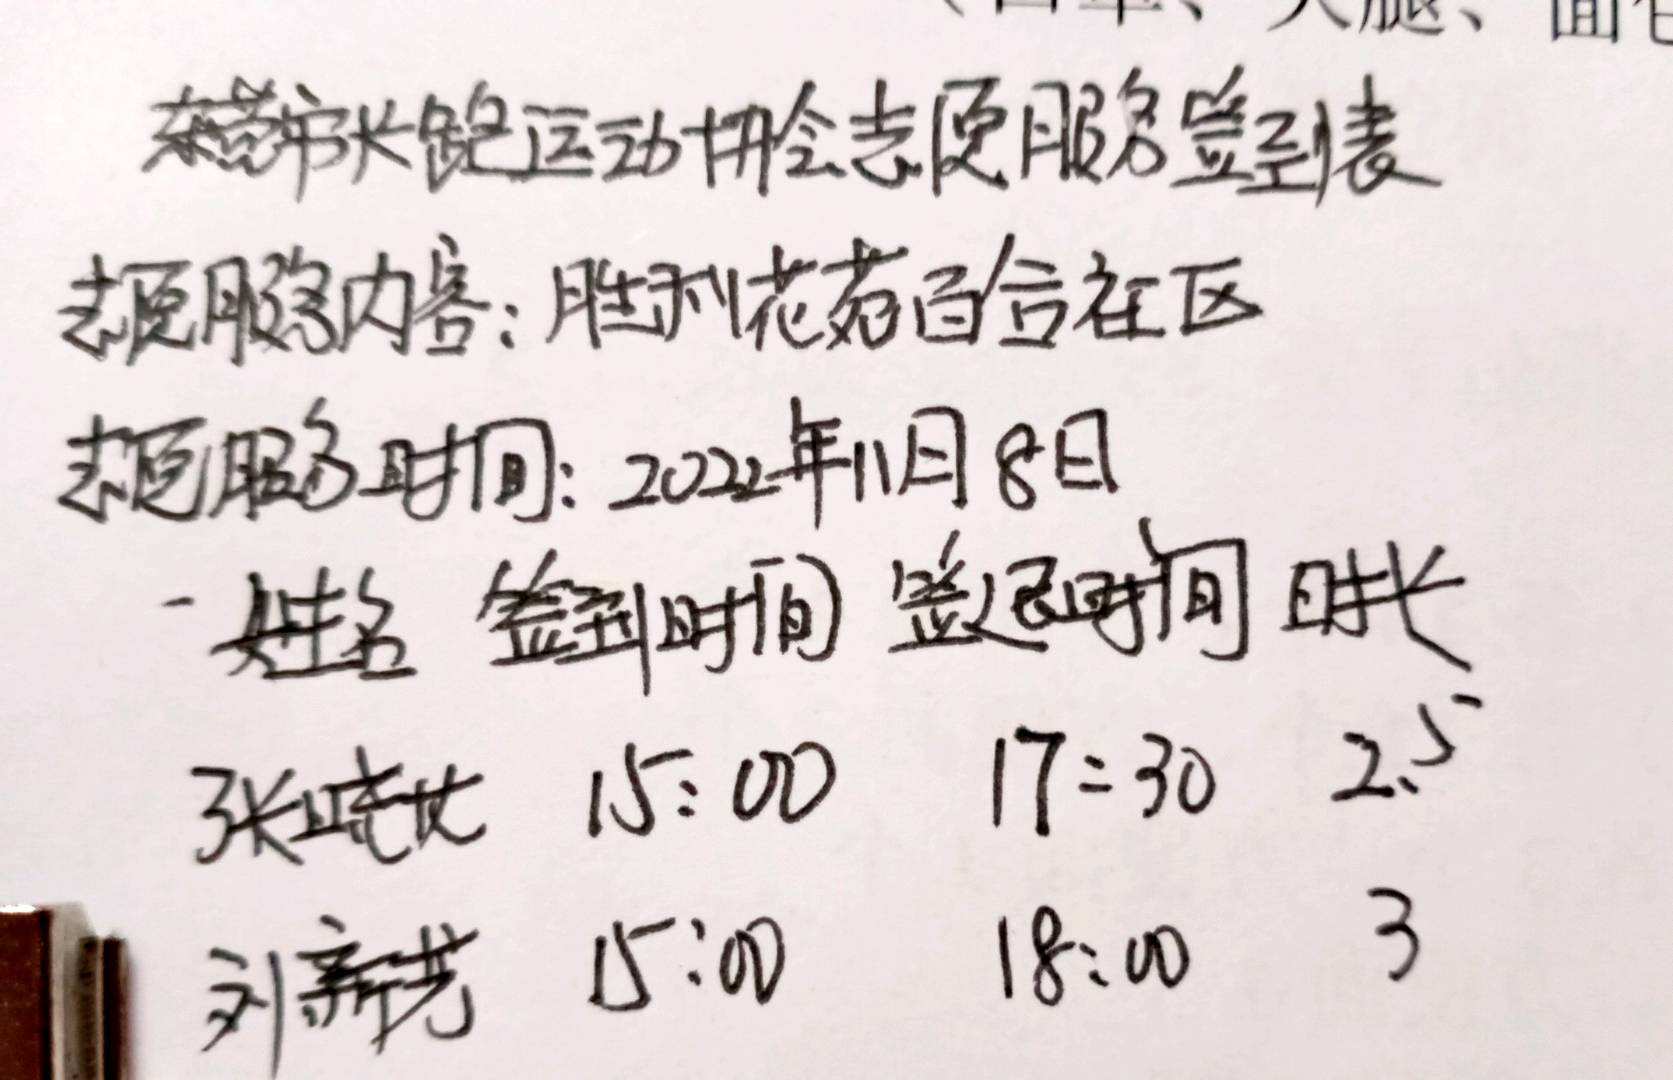 、大腿、面
东莞市长跑运动协会志愿服务签到表
志愿服务内容：胜利花苑百合社区
志愿服务时间：2022年11月8日
姓名 签到时间 签退时间 时长
张晓 15:00 17:30 2.5
刘新光 15:00 18:00 3